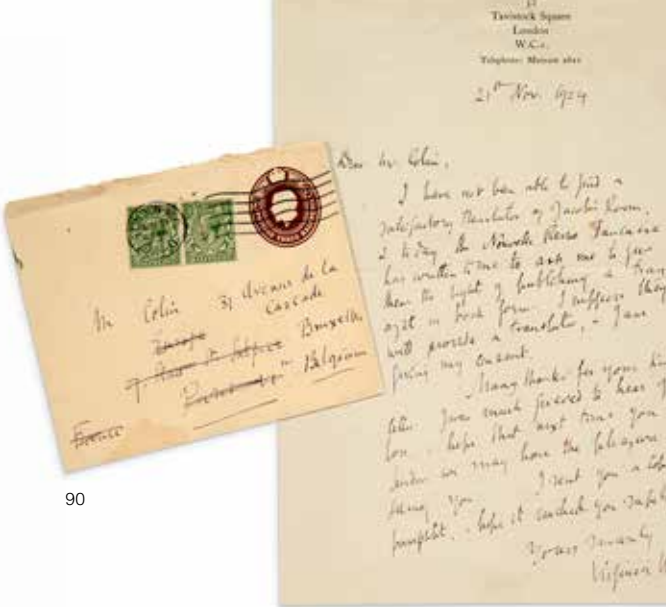 Tavistock Square
London
W.C.1.
Telephone: Museum 2621
21st Nov. 1924
Dear Mr. Colin,
I have not been able to find a
satisfactory translator of Jacob's Room.
& to day the Nouvelle Revue Francaise
has written to me to ask me to give
them the right of publishing a
it in book form. I suppose they
will provide a translator, & I am
giving my consent.
Many thanks for your
letter. I was much grieved to hear of
loss. I hope that next time you
London we may have the pleasure
seeing you. I sent you a
pamphlet, I hope it reached you safely
Yours sincerely
Virginia W
Mr Colin 31 Avenue de la
Cascade
Bruxelles,
Belgium
France
90